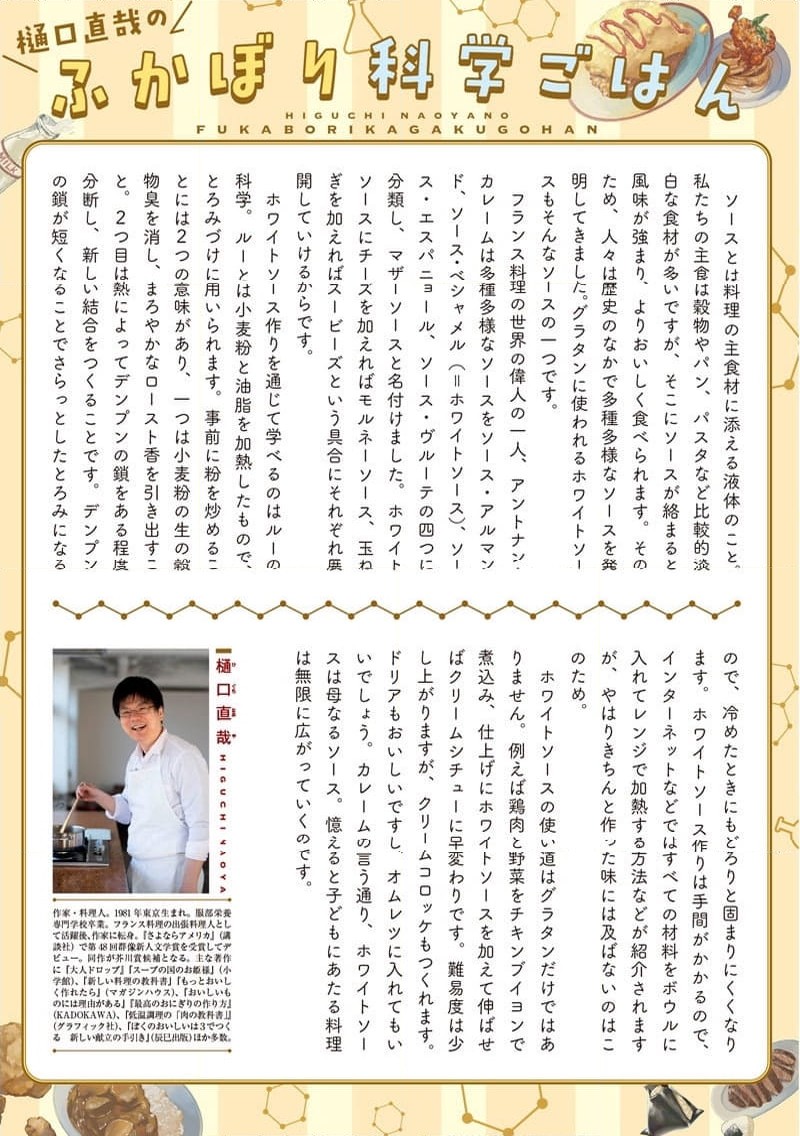 樋口直哉の
ふかぼり科学ごはん
HIGUCHI NAOYANO
FUKABORIKAGAKUGOHAN
ソースとは料理の主食材に添える液体のこと。
私たちの主食は穀物やパン、パスタなど比較的淡
白な食材が多いですが、そこにソースが絡まると
風味が強まり、よりおいしく食べられます。その
ため、人々は歴史のなかで多種多様なソースを発
明してきました。グラタンに使われるホワイトソー
スもそんなソースの一つです。
フランス料理の世界の偉人の一人、アントナン・
カレームは多種多様なソースをソース・アルマン
ド、ソース・ベシャメル（＝ホワイトソース）、ソー
ス・エスパニョール、ソース・ヴルーテの四つに
分類し、マザーソースと名付けました。ホワイト
ソースにチーズを加えればモルネーソース、玉ね
ぎを加えればスービーズという具合にそれぞれ展
開していけるからです。
ホワイトソース作りを通じて学べるのはルーの
科学。ルーとは小麦粉と油脂を加熱したもので、
とろみづけに用いられます。事前に粉を炒めるこ
とには2つの意味があり、一つは小麦粉の生の穀
物臭を消し、まろやかなロースト香を引き出すこ
と。2つ目は熱によってデンプンの鎖をある程度
分断し、新しい結合をつくることです。デンプン
の鎖が短くなることでさらっとしたとろみになる
ので、冷めたときにもどろりと固まりにくくなり
ます。ホワイトソース作りは手間がかかるので、
インターネットなどではすべての材料をボウルに
入れてレンジで加熱する方法などが紹介されます
が、やはりきちんと作った味には及ばないのはこ
のため。
ホワイトソースの使い道はグラタンだけではあ
りません。例えば鶏肉と野菜をチキンブイヨンで
煮込み、仕上げにホワイトソースを加えて伸ばせ
ばクリームシチューに早変わりです。難易度は少
し上がりますが、クリームコロッケもつくれます。
ドリアもおいしいですし、オムレツに入れてもい
いでしょう。カレームの言う通り、ホワイトソー
スは母なるソース。憶えると子どもにあたる料理
は無限に広がっていくのです。
樋口直哉
ひぐちなおや
HIGUCHI NAOYA
作家・料理人。1981年東京生まれ。服部栄養
専門学校卒業。フランス料理の出張料理人とし
て活躍後、作家に転身。『さよならアメリカ』（講
談社）で第48回群像新人文学賞を受賞してデ
ビュー。同作が芥川賞候補となる。主な著作
に『大人ドロップ』『スープの国のお姫様』（小
学館）、『新しい料理の教科書』『もっとおいし
く作れたら』（マガジンハウス）、『おいしいも
のには理由がある』『最高のおにぎりの作り方』
(KADOKAWA)、『低温調理の「肉の教科書」』
（グラフィック社）、『ぼくのおいしいは3でつく
る 新しい献立の手引き』（辰巳出版）ほか多数。
MILK